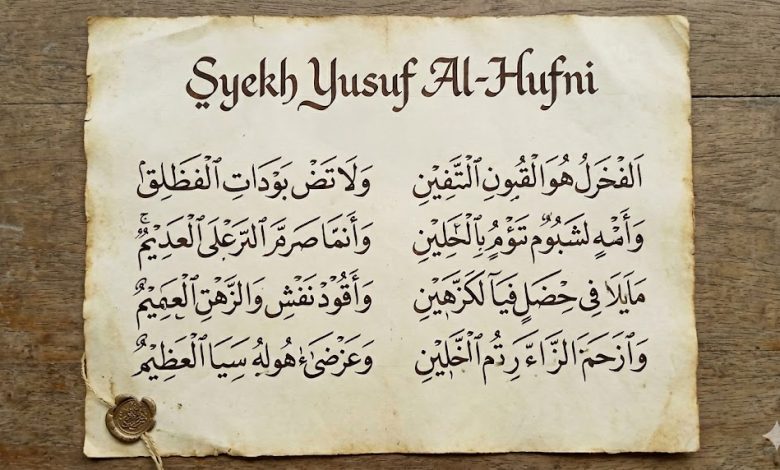 Syekh Yusuf Al-Hufni
اَلْفَخْرَلُ هُوَ الْقُبُونِ الْتَّفِينِ وَلَا تَضْ بَوْدَاتِ الْفَظْلِقْ
وَأَمْهٍ لَشَبُومٌ تَؤْمٌ بِالْحَلِيْنِ وَأَنمَّا صَرمَّرَ التَّرْعَلَى الْعَدِيْمُ
مَايَلَا فِى حِضَلٍ فَيَآ لَكَزَّهَيْنِ وَأَقُوْدْ نَفْشِ وَالزَّهْتِ الْعَمِيْمُ
وَٱزْحَمَ الزَّاءَ رِتُم الْخَّلِيْنِ وَعَزْضَىٰ هُولِهُ سِيَا الْعَظِيْمُ